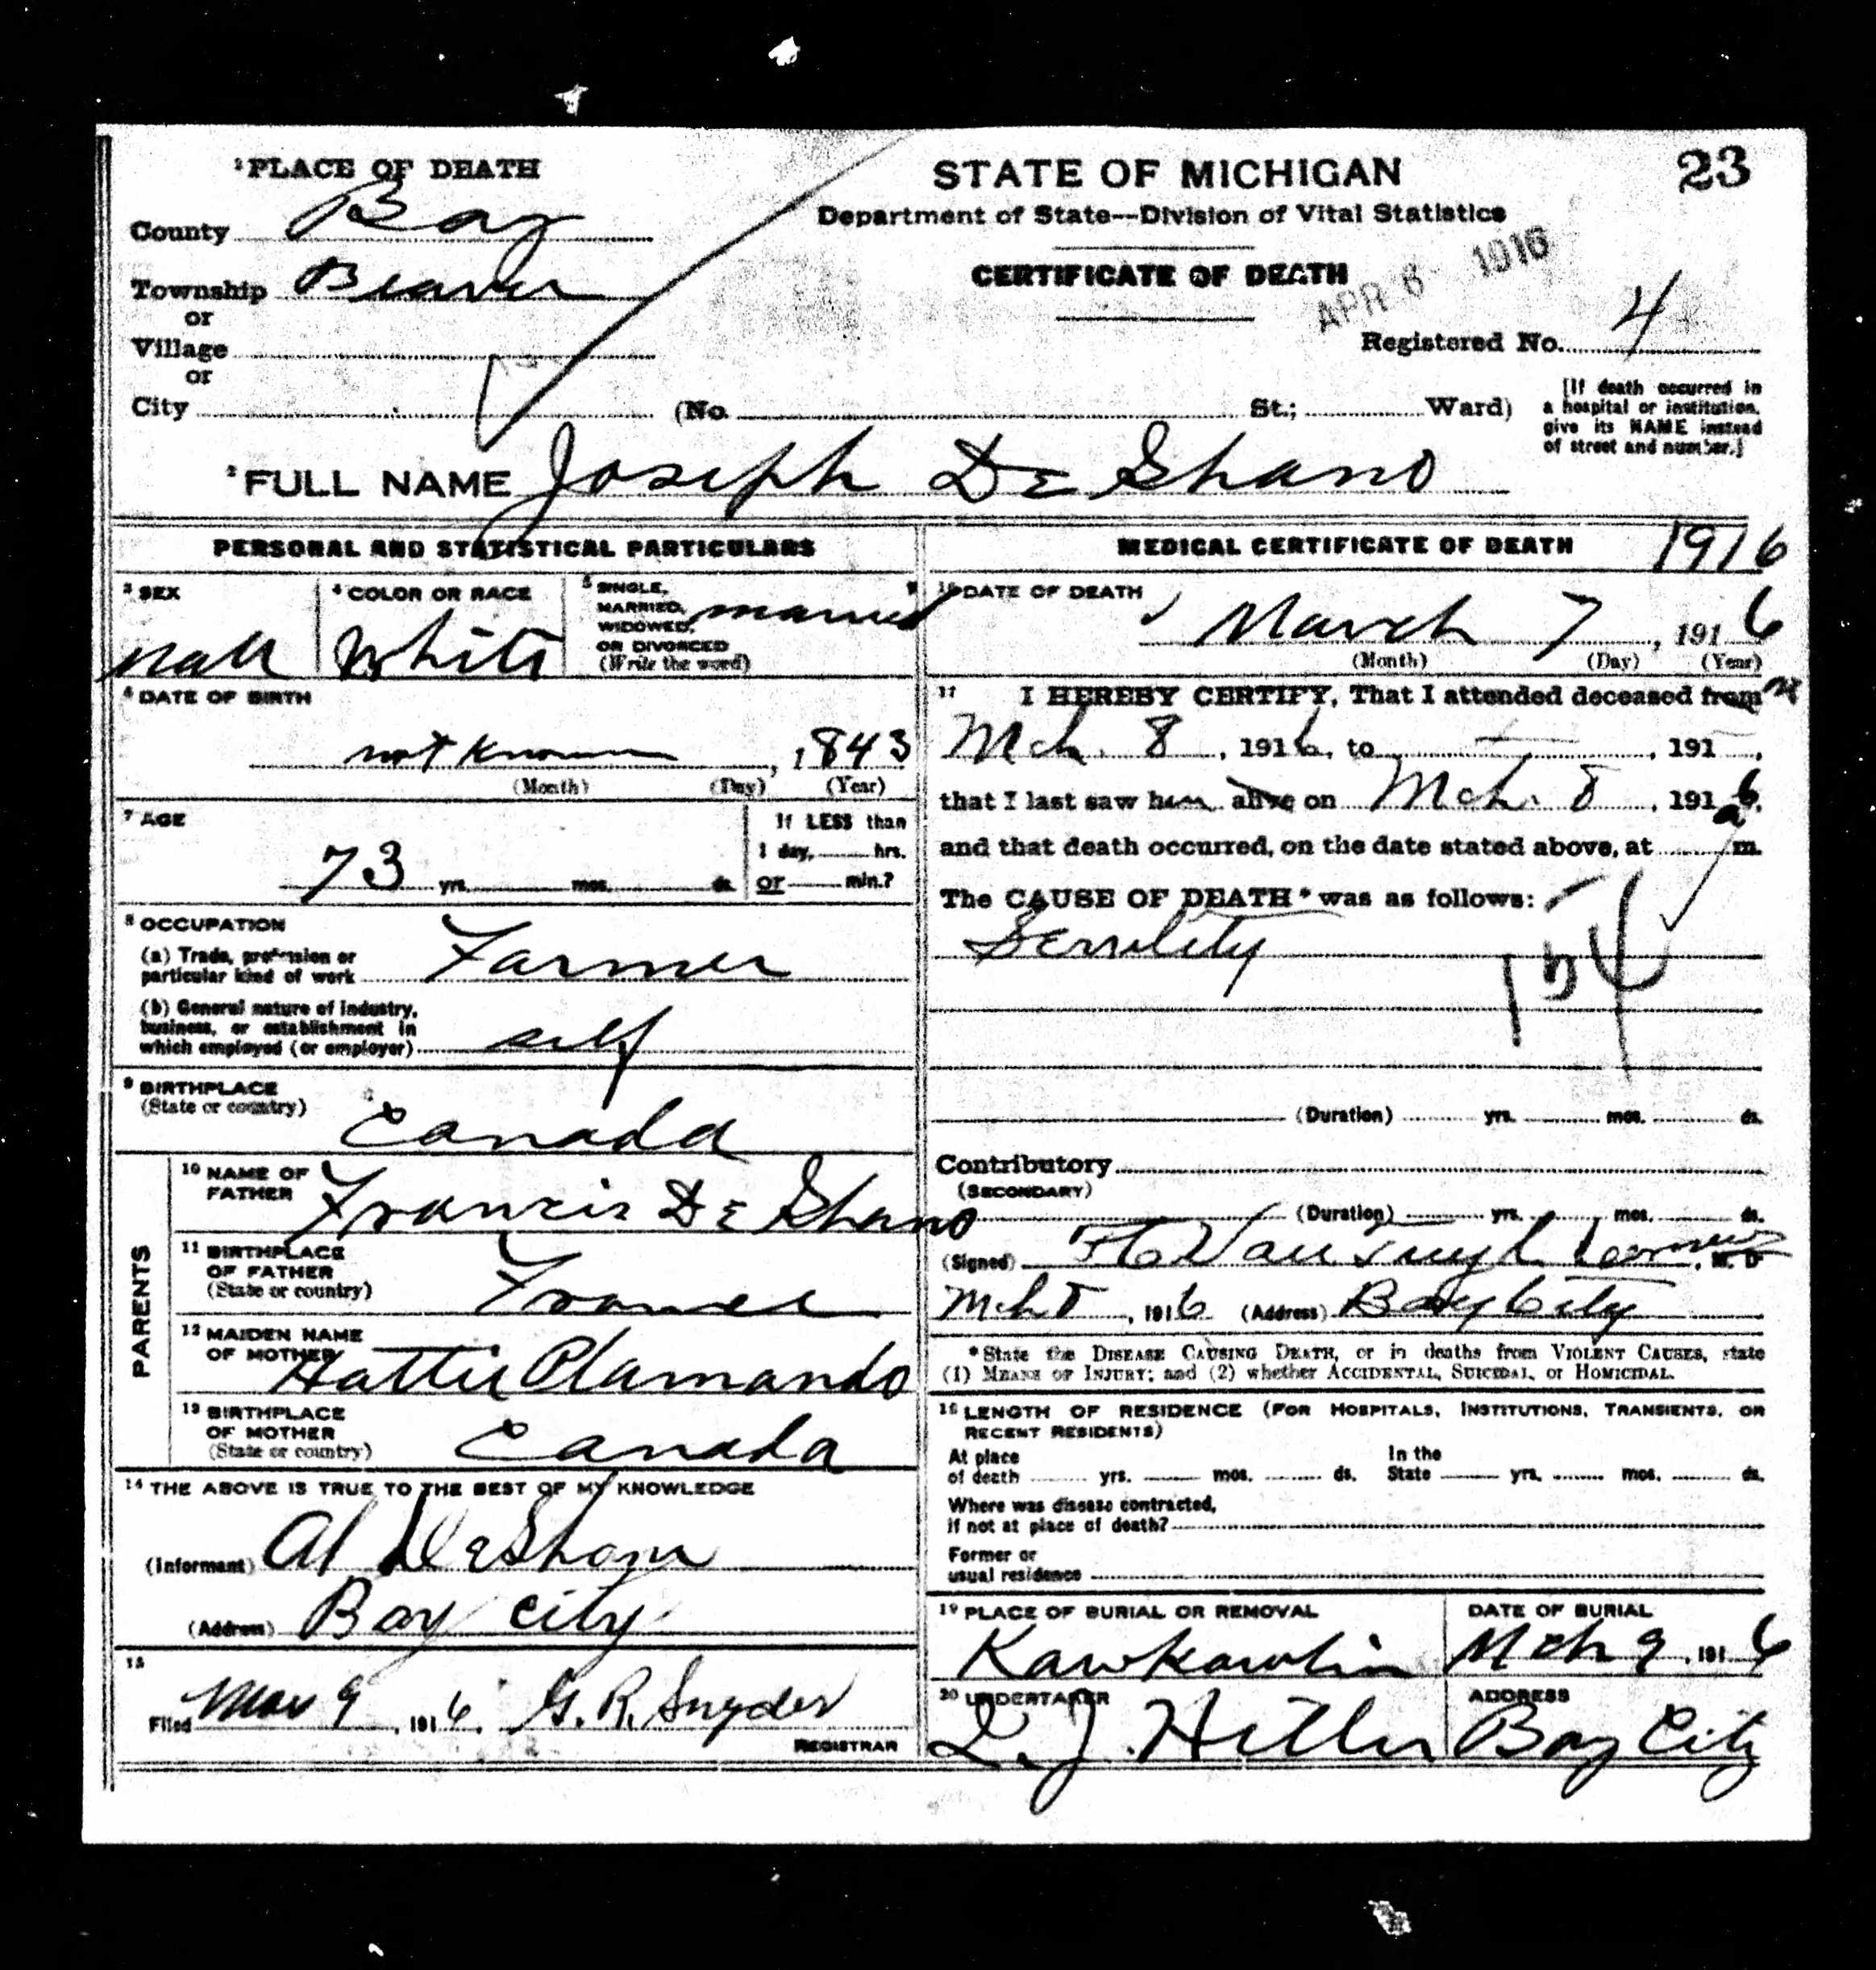 23
¹PLACE OF DEATH
County Bay
Township Beaver
or
Village
or
City (No. St.; Ward)
STATE OF MICHIGAN
Department of State—Division of Vital Statistics
CERTIFICATE OF DEATH
APR 6 1916
Registered No. 4
[If death occurred in
a hospital or institution,
give its NAME instead
of street and number.]
²FULL NAME Joseph DeShano
PERSONAL AND STATISTICAL PARTICULARS
³ SEX
Male
⁴ COLOR OR RACE
White
⁵ SINGLE,
MARRIED,
WIDOWED,
OR DIVORCED
(Write the word)
married
⁶ DATE OF BIRTH
not known, 1843
(Month) (Day) (Year)
⁷ AGE
73 yrs. mos. ds.
If LESS than
1 day, hrs.
or min.?
⁸ OCCUPATION
(a) Trade, profession or
particular kind of work Farmer
(b) General nature of industry,
business, or establishment in
which employed (or employer) self
⁹ BIRTHPLACE
(State or country)
Canada
PARENTS
¹⁰ NAME OF
FATHER
Francis DeShano
¹¹ BIRTHPLACE
OF FATHER
(State or country)
France
¹² MAIDEN NAME
OF MOTHER
Hattie Plamando
¹³ BIRTHPLACE
OF MOTHER
(State or country)
Canada
¹⁴ THE ABOVE IS TRUE TO THE BEST OF MY KNOWLEDGE
(Informant) Al DeShano
(Address) Bay City
¹⁵
Filed Mar 9, 1916. G. R. Snyder
REGISTRAR
MEDICAL CERTIFICATE OF DEATH 1916
¹⁶ DATE OF DEATH
March 7, 1916
(Month) (Day) (Year)
¹⁷ I HEREBY CERTIFY, That I attended deceased from
Mch. 8, 1916, to — , 191 —,
that I last saw him alive on Mch. 8, 1916,
and that death occurred, on the date stated above, at a m.
The CAUSE OF DEATH* was as follows:
Senility
154
(Duration) yrs. mos. ds.
Contributory
(SECONDARY)
(Duration) yrs. mos. ds.
(Signed) Coroner, M. D.
Mch 8, 1916 (Address) Bay City
*State the DISEASE CAUSING DEATH, or in deaths from VIOLENT CAUSES, state
(1) MEANS OF INJURY; and (2) whether ACCIDENTAL, SUICIDAL, or HOMICIDAL.
¹⁸ LENGTH OF RESIDENCE (FOR HOSPITALS, INSTITUTIONS, TRANSIENTS, OR
RECENT RESIDENTS)
At place
of death yrs. mos. ds.
In the
State yrs. mos. ds.
Where was disease contracted,
if not at place of death?
Former or
usual residence
¹⁹ PLACE OF BURIAL OR REMOVAL
Kawkawlin
DATE OF BURIAL
Mch 9, 1916
²⁰ UNDERTAKER
L. J. Hitler
ADDRESS
Bay City